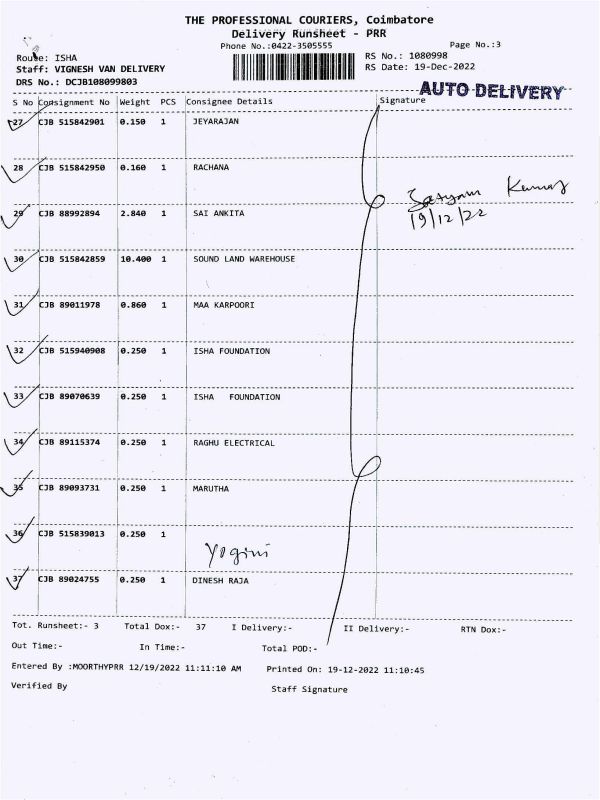 THE PROFESSIONAL COURIERS, Coimbatore
Delivery Runsheet - PRR
Phone No.:0422-3505555 Page No.:3
Route: ISHA RS No.: 1080998
Staff: VIGNESH VAN DELIVERY RS Date: 19-Dec-2022
DRS No.: DCJB108099803
AUTO DELIVERY
S No Consignment No Weight PCS Consignee Details Signature
27 CJB 515842901 0.150 1 JEYARAJAN
28 CJB 515842950 0.160 1 RACHANA
Satyam Kumar
29 CJB 88992894 2.840 1 SAI ANKITA 19/12/22
30 CJB 515842859 10.400 1 SOUND LAND WAREHOUSE
31 CJB 89011978 0.860 1 MAA KARPOORI
32 CJB 515940908 0.250 1 ISHA FOUNDATION
33 CJB 89070639 0.250 1 ISHA FOUNDATION
34 CJB 89115374 0.250 1 RAGHU ELECTRICAL
35 CJB 89093731 0.250 1 MARUTHA
36 CJB 515839013 0.250 1
Yogini
37 CJB 89024755 0.250 1 DINESH RAJA
Tot. Runsheet:- 3 Total Dox:- 37 I Delivery:- II Delivery:- RTN Dox:-
Out Time:- In Time:- Total POD:-
Entered By :MOORTHYPRR 12/19/2022 11:11:10 AM Printed On: 19-12-2022 11:10:45
Verified By Staff Signature